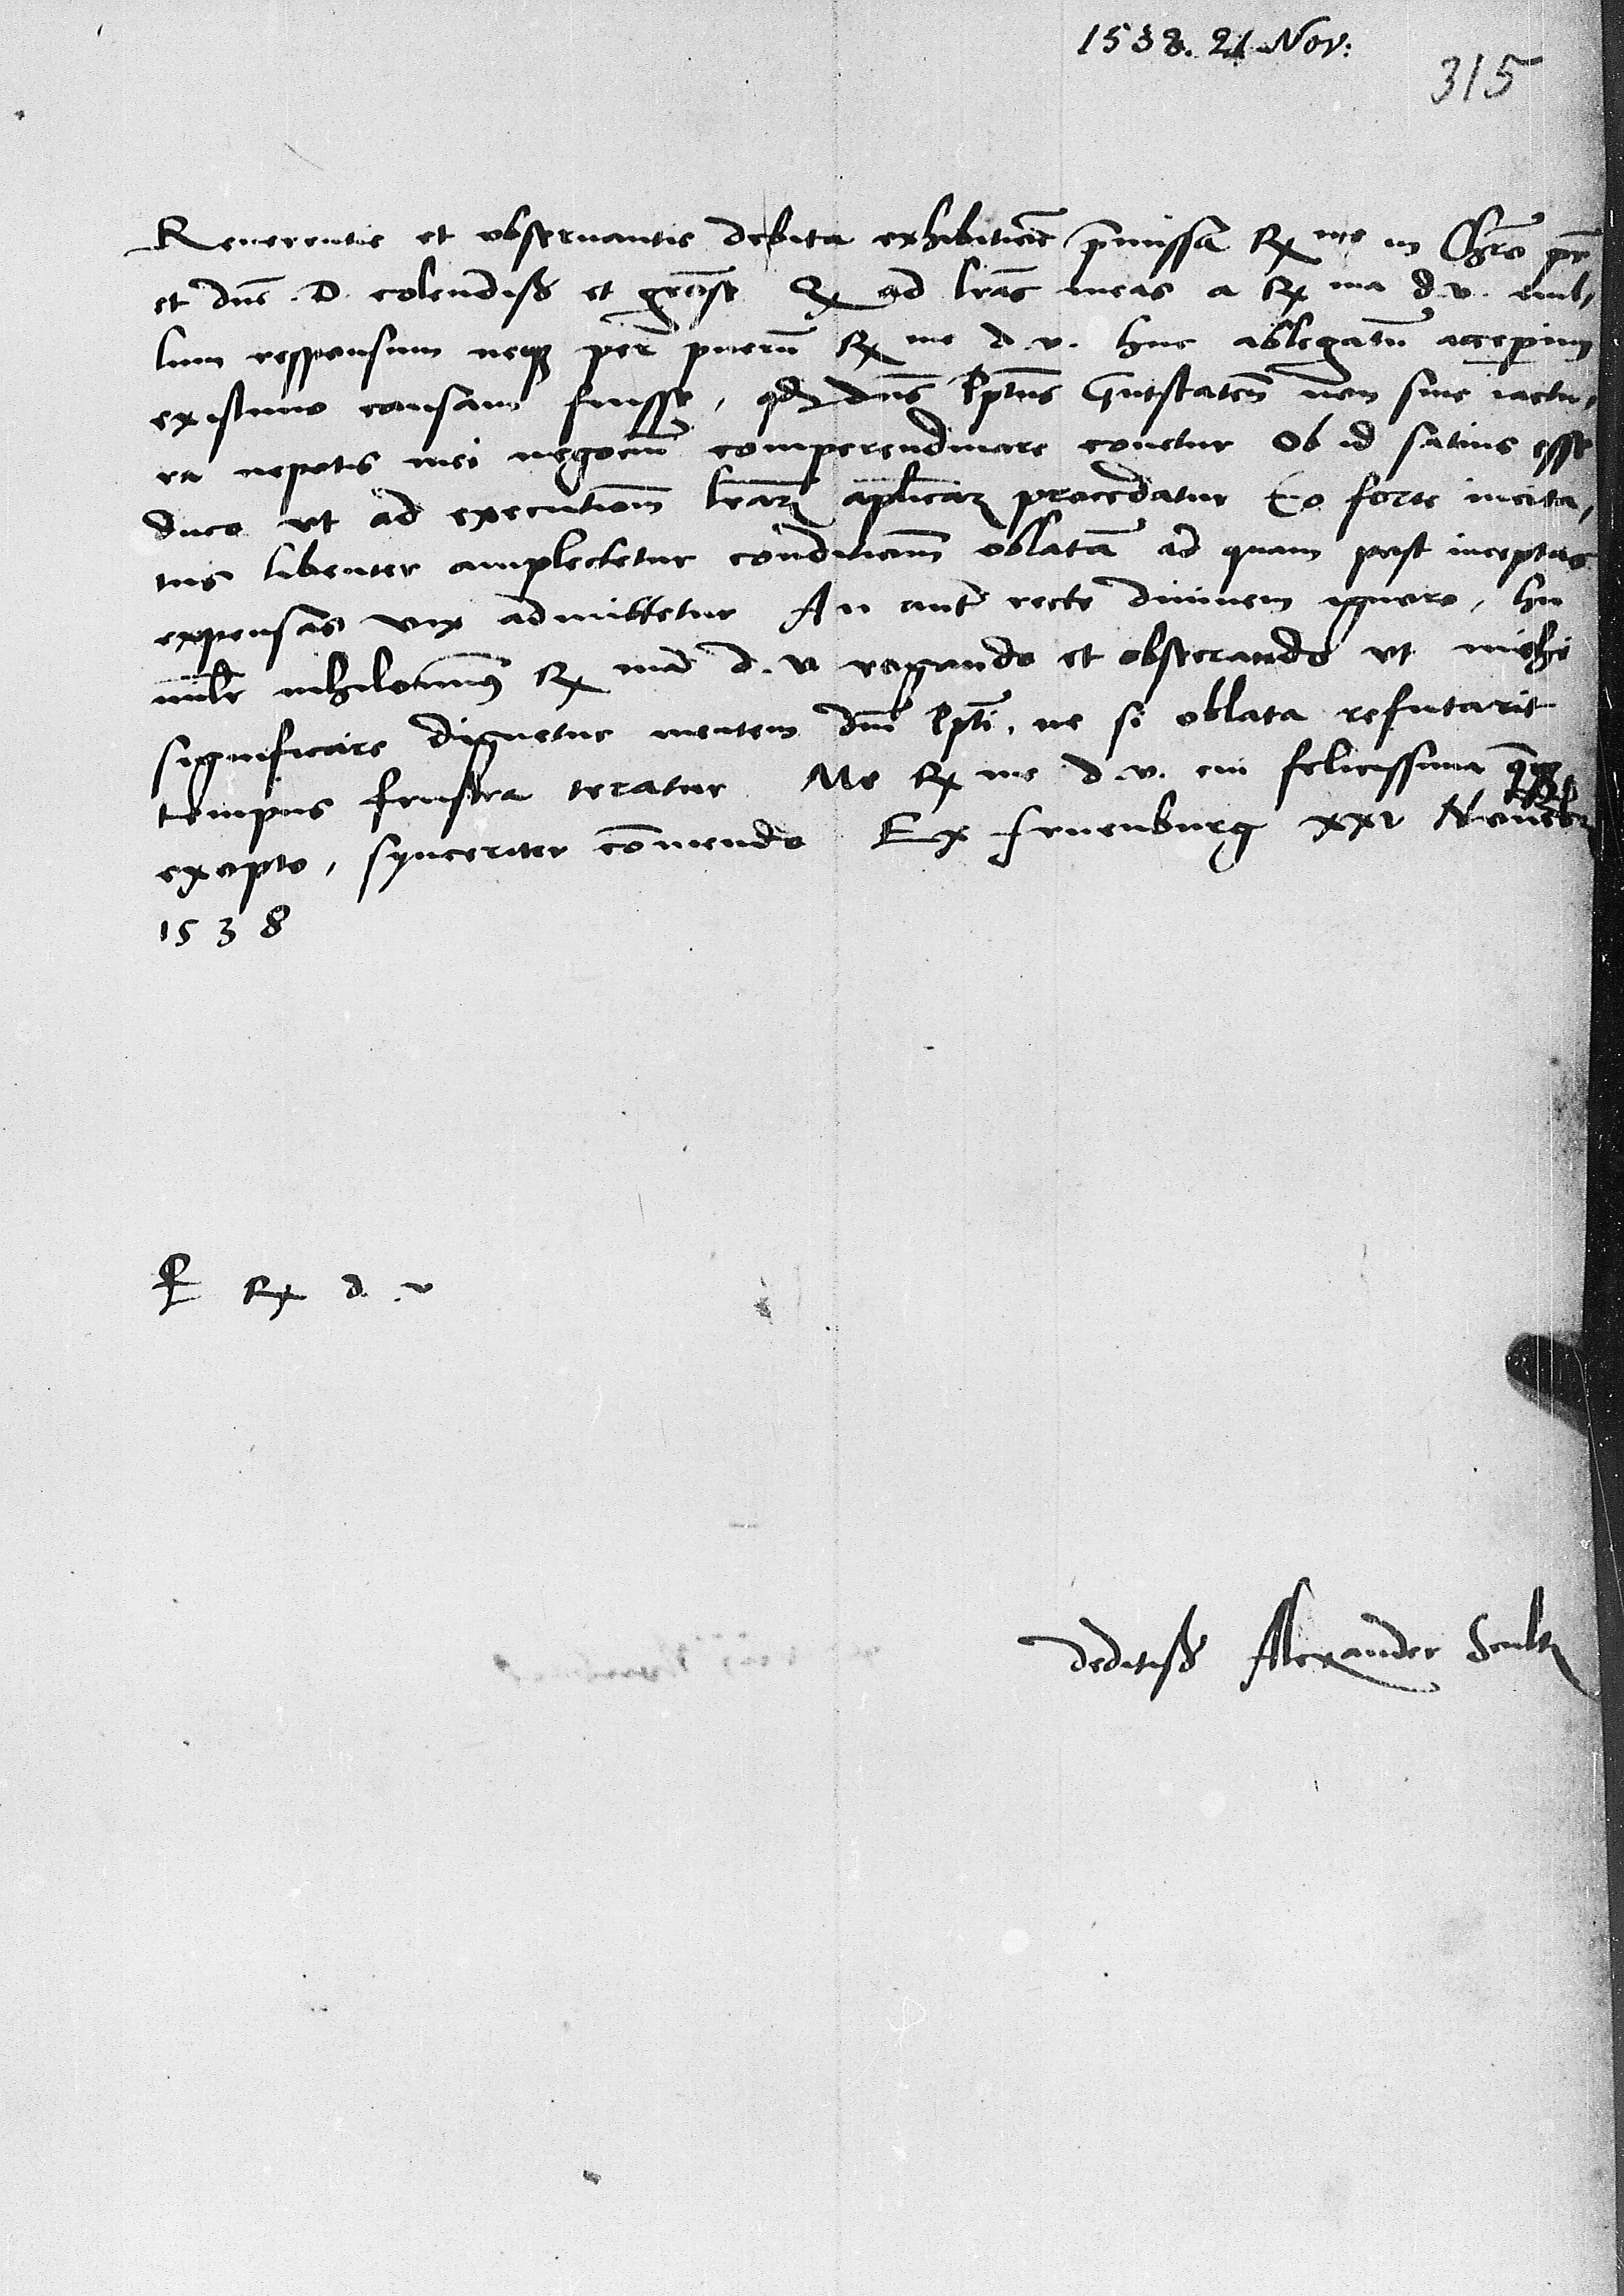 1538. 21 Nov:
315
Reverentie et observantie debita exhibitione premissa Rx me in Christo pr
et dne .D. colendiss et gratiose Qx ad lras meas a Rx ma d.v. nul,
lum responsum neqz per pueru Rx me d.v. huc ablegatu accepimus
existimo causam fuisse, qd dns Gutstaten non sine iactu,
ra nepotis mei negociu comperendinare conetur Ob id satius esse
duco ut ad executionem lrarz aplicarz procedatur Eo forte incita,
tus libenter amplectetur conditionem oblata ad quam post inceptas
expensas vix admittetur An aut recte divinem ignoro, hu
milr nihilominus Rx mad d.v rogando et obsecrando ut michi
significare dignetur mentem dni ne si oblata refutarit
tempus frustra teratur Me Rx me d.v. cui felicissima
exopto, synceriter comendo Ex fruenburg xxi Novebr
1538
E Rx d. v
deditiss Alexander Scultz